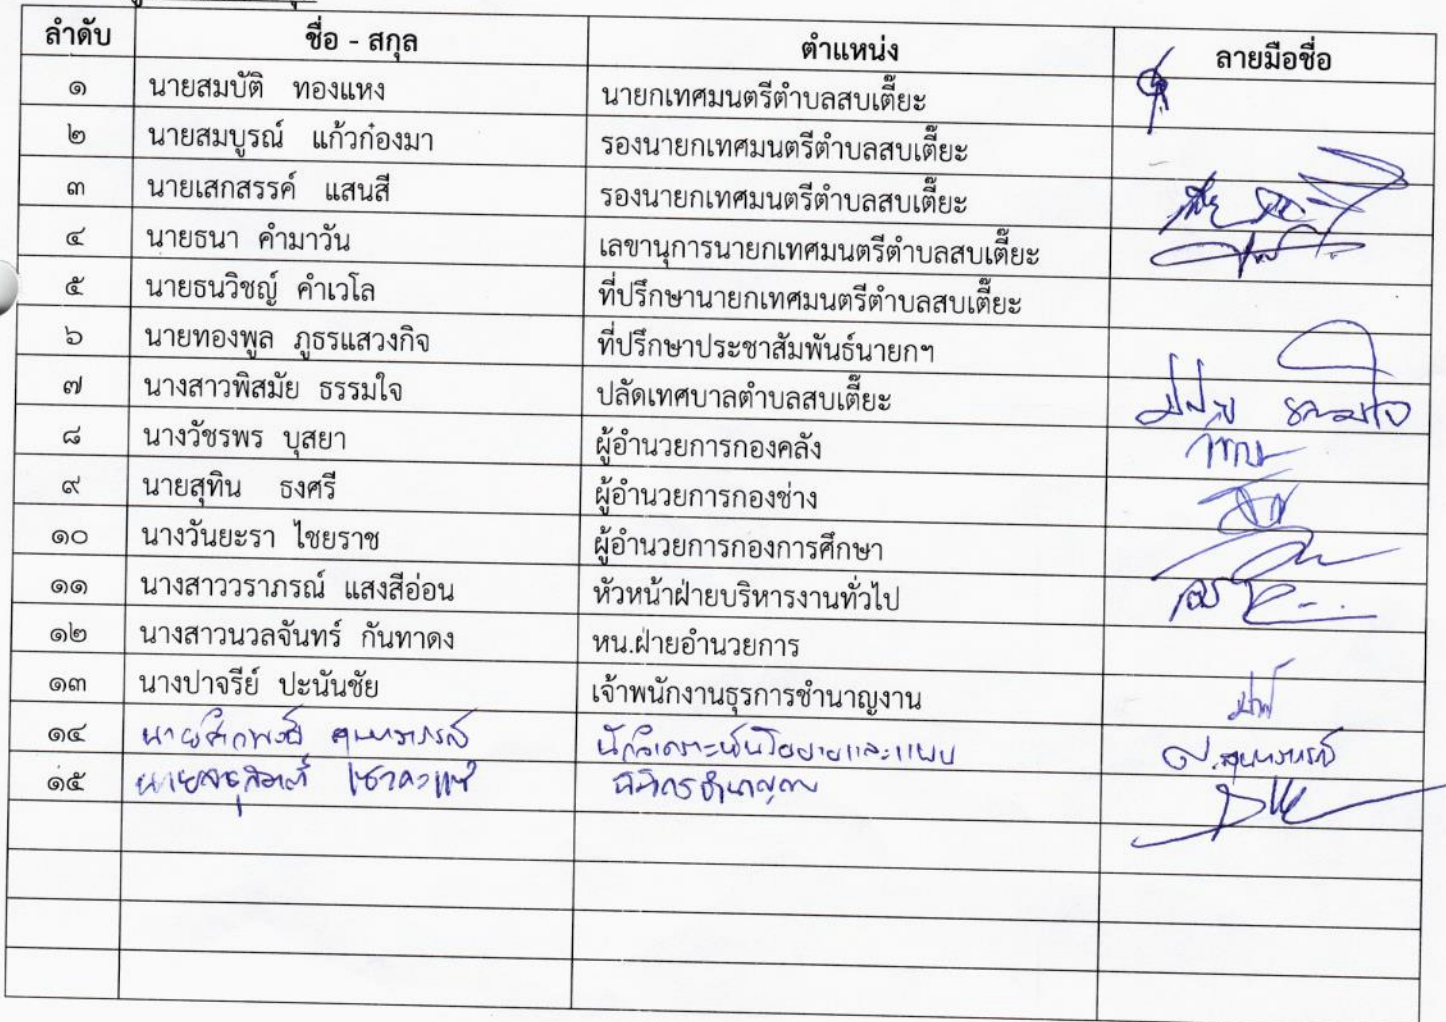 ลำดับ ชื่อ - สกุล ตำแหน่ง ลายมือชื่อ
๑ นายสมบัติ ทองแหง นายกเทศมนตรีตำบลสบเตี๊ยะ
๒ นายสมบูรณ์ แก้วก๋องมา รองนายกเทศมนตรีตำบลสบเตี๊ยะ
๓ นายเสกสรรค์ แสนสี รองนายกเทศมนตรีตำบลสบเตี๊ยะ
๔ นายธนา คำมาวัน เลขานุการนายกเทศมนตรีตำบลสบเตี๊ยะ
๕ นายธนวิชญ์ คำเวโล ที่ปรึกษานายกเทศมนตรีตำบลสบเตี๊ยะ
๖ นายทองพูล ภูธรแสวงกิจ ที่ปรึกษาประชาสัมพันธ์นายกฯ
๗ นางสาวพิสมัย ธรรมใจ ปลัดเทศบาลตำบลสบเตี๊ยะ
๘ นางวัชรพร บุสยา ผู้อำนวยการกองคลัง
๙ นายสุทิน ธงศรี ผู้อำนวยการกองช่าง
๑๐ นางวันยะรา ไชยราช ผู้อำนวยการกองการศึกษา
๑๑ นางสาววราภรณ์ แสงสีอ่อน หัวหน้าฝ่ายบริหารงานทั่วไป
๑๒ นางสาวนวลจันทร์ กันทาดง หน.ฝ่ายอำนวยการ
๑๓ นางปาจรีย์ ปะนันชัย เจ้าพนักงานธุรการชำนาญงาน
๑๔ นักวิเคราะห์นโยบายและแผน
๑๕